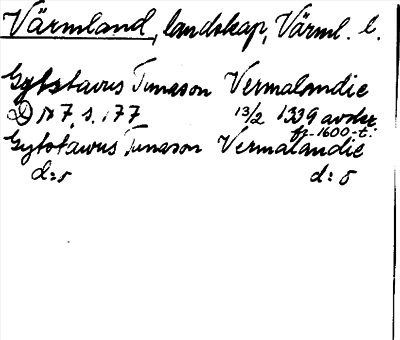 Värmland, landskap, Värml. l.
Gytstavus Tunason Vermalandie
D N 7, s. 177 13/2 1339 avskr.
fr. 1600-t.
Gytstawus Tunason Vermalandie
d:o d:o